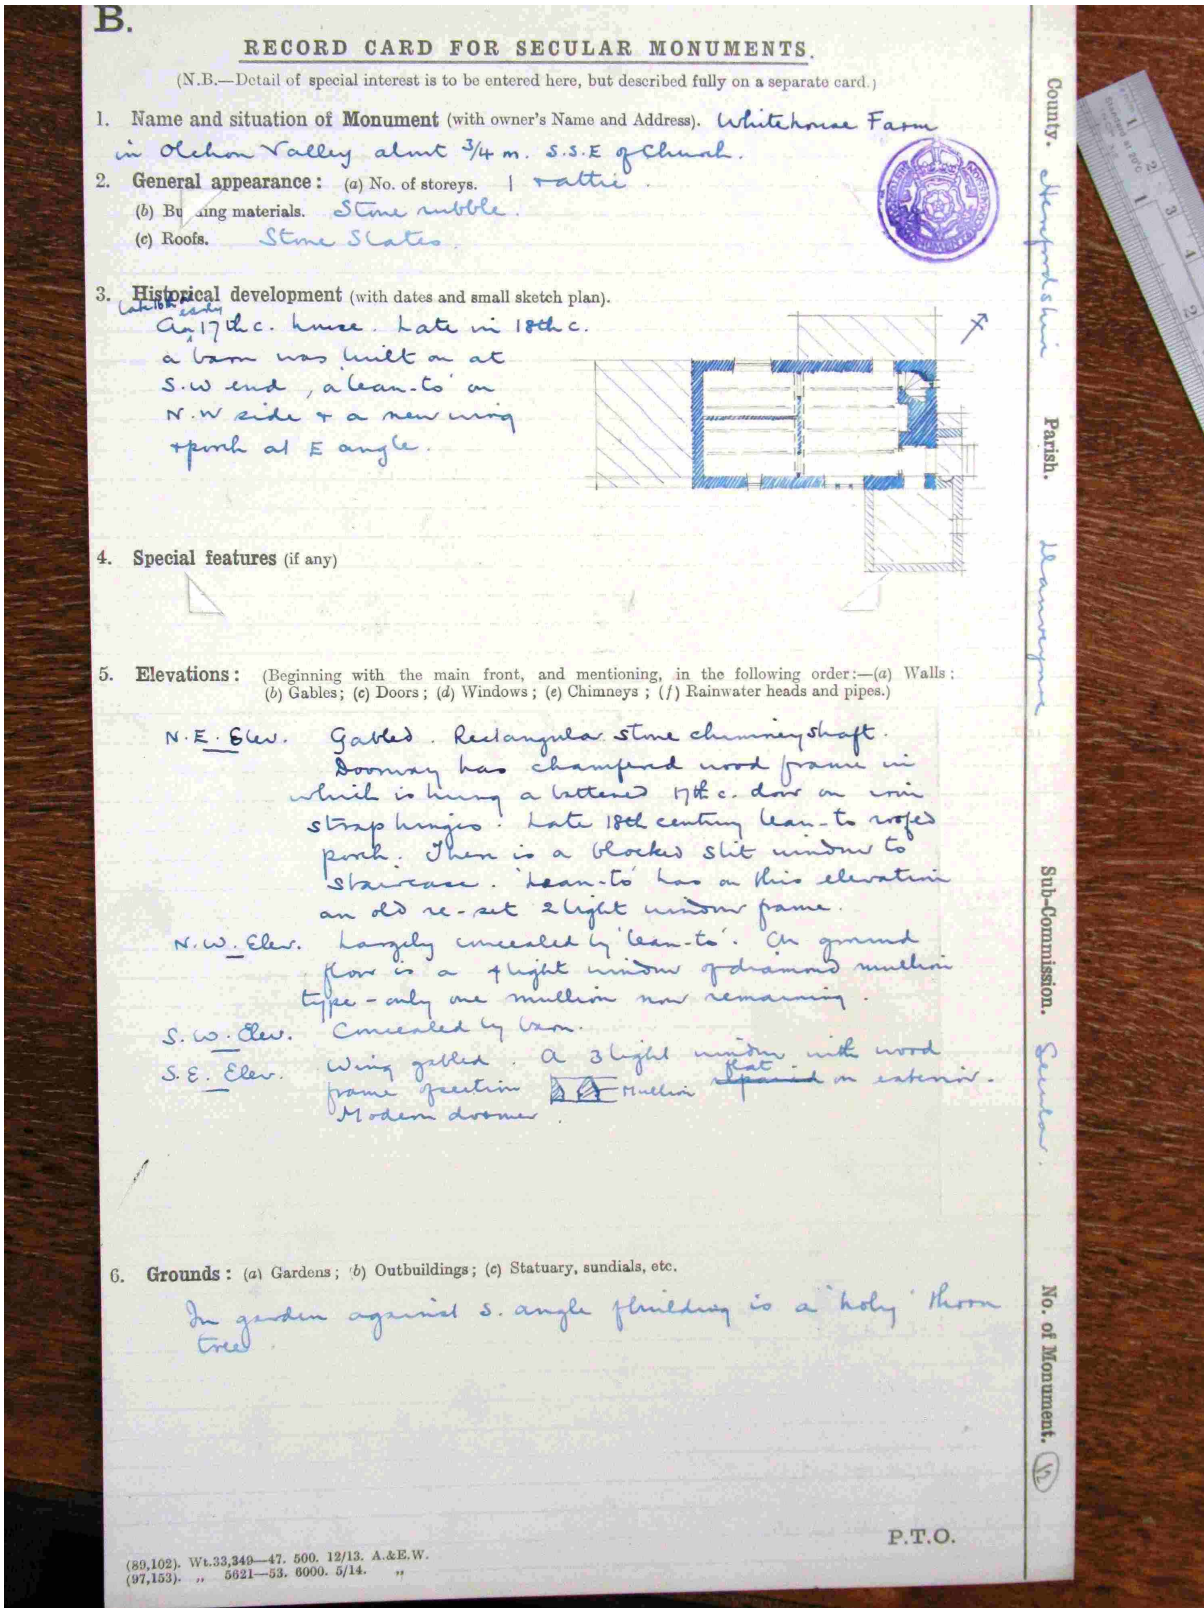 B.
RECORD CARD FOR SECULAR MONUMENTS.
(N.B.—Detail of special interest is to be entered here, but described fully on a separate card.)
1. Name and situation of Monument (with owner's Name and Address). Whitehouse Farm
in Olchon Valley about 3/4 m. S.S.E of Church.
2. General appearance: (a) No. of storeys. 1 + attic.
(b) Bu ing materials. Stone rubble.
(c) Roofs. Stone Slates.
3. Historical development (with dates and small sketch plan).
late 16th or early
A 17th c. house. Late in 18th c.
a barn was built on at
S.W end, a 'lean-to' on
N.W side + a new wing
+ porch at E angle.
4. Special features (if any)
5. Elevations: (Beginning with the main front, and mentioning, in the following order:—(a) Walls;
(b) Gables; (c) Doors; (d) Windows; (e) Chimneys; (f) Rainwater heads and pipes.)
N.E. Elev. Gabled. Rectangular stone chimney shaft.
Doorway has chamfered wood frame in
which is hung a battened 17th c. door on iron
strap hinges. Late 18th century lean-to roofed
porch. There is a blocked slit window to
staircase. 'Lean-to' has on this elevation
an old re-set 2 light window frame.
N.W. Elev. Largely concealed by 'lean-to'. On ground
floor is a 4 light window of diamond mullion
type - only one mullion now remaining.
S.W. Elev. Concealed by barn.
S.E. Elev. Wing gabled. A 3 light window with wood
frame of section Mullion flat on exterior.
Modern doormer.
6. Grounds: (a) Gardens; (b) Outbuildings; (c) Statuary, sundials, etc.
In garden against S. angle of building is a 'holy' thorn
tree
P.T.O.
(89,102). Wt.33,349—47. 500. 12/13. A.&E.W.
(97,153). ,, 5621—53. 6000. 5/14. ,,
County. Herefordshire
Parish. Llanveynoe
Sub-Commission. Secular.
No. of Monument. 12